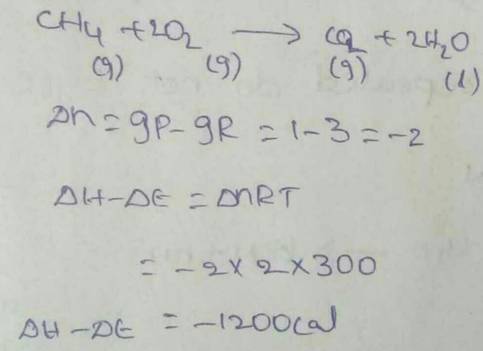 CH4 + 2O2 → CO2 + 2H2O
(g) (g) (g) (l)
Δn = gP - gR = 1 - 3 = -2
ΔH - ΔE = ΔnRT
= -2 × 2 × 300
ΔH - ΔE = -1200cal